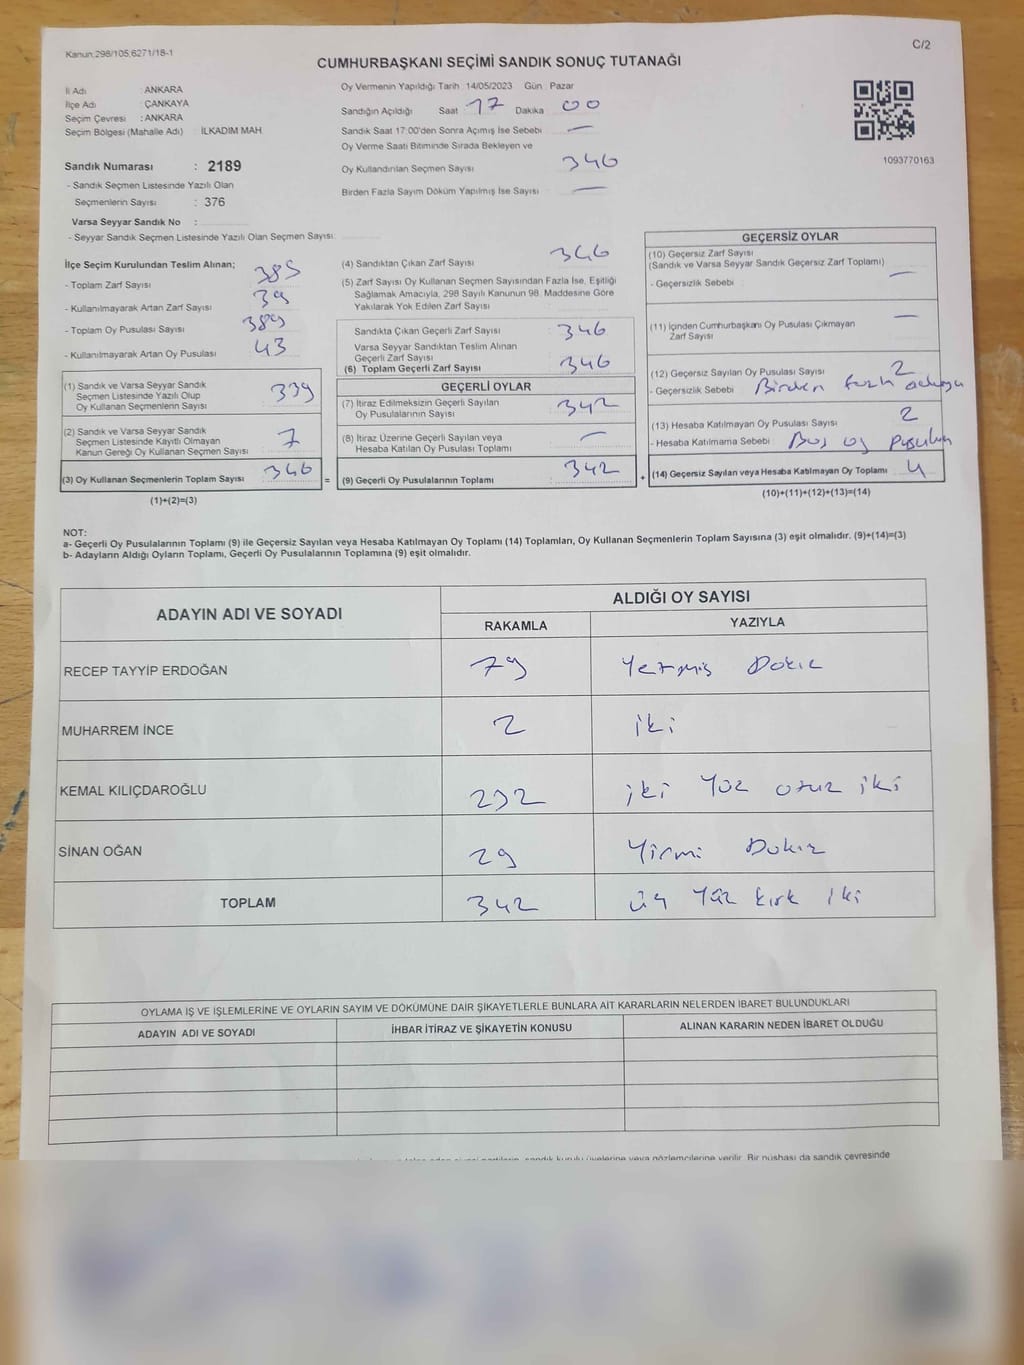 Kanun.298/105,6271/18-1
C/2
CUMHURBAŞKANI SEÇİMİ SANDIK SONUÇ TUTANAĞI
İl Adı : ANKARA
İlçe Adı : ÇANKAYA
Seçim Çevresi : ANKARA
Seçim Bölgesi (Mahalle Adı) İLKADIM MAH.
Sandık Numarası : 2189
- Sandık Seçmen Listesinde Yazılı Olan
Seçmenlerin Sayısı : 376
Varsa Seyyar Sandık No :
- Seyyar Sandık Seçmen Listesinde Yazılı Olan Seçmen Sayısı:
Oy Vermenin Yapıldığı Tarih :14/05/2023 Gün : Pazar
Sandığın Açıldığı Saat 17 Dakika 00
Sandık Saat 17:00'den Sonra Açımış İse Sebebi —
Oy Verme Saati Bitiminde Sırada Bekleyen ve
Oy Kullandırılan Seçmen Sayısı 346
Birden Fazla Sayım Döküm Yapılmış İse Sayısı —
1093770163
İlçe Seçim Kurulundan Teslim Alınan;
- Toplam Zarf Sayısı 385
- Kullanılmayarak Artan Zarf Sayısı 39
- Toplam Oy Pusulası Sayısı 389
- Kullanılmayarak Artan Oy Pusulası 43
(1) Sandık ve Varsa Seyyar Sandık
Seçmen Listesinde Yazılı Olup
Oy Kullanan Seçmenlerin Sayısı 339
(2) Sandık ve Varsa Seyyar Sandık
Seçmen Listesinde Kayıtlı Olmayan
Kanun Gereği Oy Kullanan Seçmen Sayısı 7
(3) Oy Kullanan Seçmenlerin Toplam Sayısı 346
(1)+(2)=(3)
(4) Sandıktan Çıkan Zarf Sayısı 346
(5) Zarf Sayısı Oy Kullanan Seçmen Sayısından Fazla İse, Eşitliği
Sağlamak Amacıyla, 298 Sayılı Kanunun 98. Maddesine Göre
Yakılarak Yok Edilen Zarf Sayısı
Sandıkta Çıkan Geçerli Zarf Sayısı 346
Varsa Seyyar Sandıktan Teslim Alınan
Geçerli Zarf Sayısı
(6) Toplam Geçerli Zarf Sayısı 346
GEÇERLİ OYLAR
(7) İtiraz Edilmeksizin Geçerli Sayılan
Oy Pusulalarının Sayısı 342
(8) İtiraz Üzerine Geçerli Sayılan veya
Hesaba Katılan Oy Pusulası Toplamı —
= (9) Geçerli Oy Pusulalarının Toplamı 342
GEÇERSİZ OYLAR
(10) Geçersiz Zarf Sayısı
(Sandık ve Varsa Seyyar Sandık Geçersiz Zarf Toplamı) —
- Geçersizlik Sebebi
(11) İçinden Cumhurbaşkanı Oy Pusulası Çıkmayan —
Zarf Sayısı
(12) Geçersiz Sayılan Oy Pusulası Sayısı 2
- Geçersizlik Sebebi Birden fazla
(13) Hesaba Katılmayan Oy Pusulası Sayısı 2
- Hesaba Katılmama Sebebi : Boş oy pusulası
+ (14) Geçersiz Sayılan veya Hesaba Katılmayan Oy Toplamı 4
(10)+(11)+(12)+(13)=(14)
NOT:
a- Geçerli Oy Pusulalarının Toplamı (9) ile Geçersiz Sayılan veya Hesaba Katılmayan Oy Toplamı (14) Toplamları, Oy Kullanan Seçmenlerin Toplam Sayısına (3) eşit olmalıdır. (9)+(14)=(3)
b- Adayların Aldığı Oyların Toplamı, Geçerli Oy Pusulalarının Toplamına (9) eşit olmalıdır.
ADAYIN ADI VE SOYADI ALDIĞI OY SAYISI
RAKAMLA YAZIYLA
RECEP TAYYİP ERDOĞAN 79 Yetmiş Dokuz
MUHARREM İNCE 2 iki
KEMAL KILIÇDAROĞLU 232 iki Yüz otuz iki
SİNAN OĞAN 29 Yirmi Dokuz
TOPLAM 342 üç Yüz kırk iki
OYLAMA İŞ VE İŞLEMLERİNE VE OYLARIN SAYIM VE DÖKÜMÜNE DAİR ŞİKAYETLERLE BUNLARA AİT KARARLARIN NELERDEN İBARET BULUNDUKLARI
ADAYIN ADI VE SOYADI İHBAR İTİRAZ VE ŞİKAYETİN KONUSU ALINAN KARARIN NEDEN İBARET OLDUĞU
sandık kurulu üyelerine veya gözlemcilerine verilir. Bir nüshası da sandık çevresinde